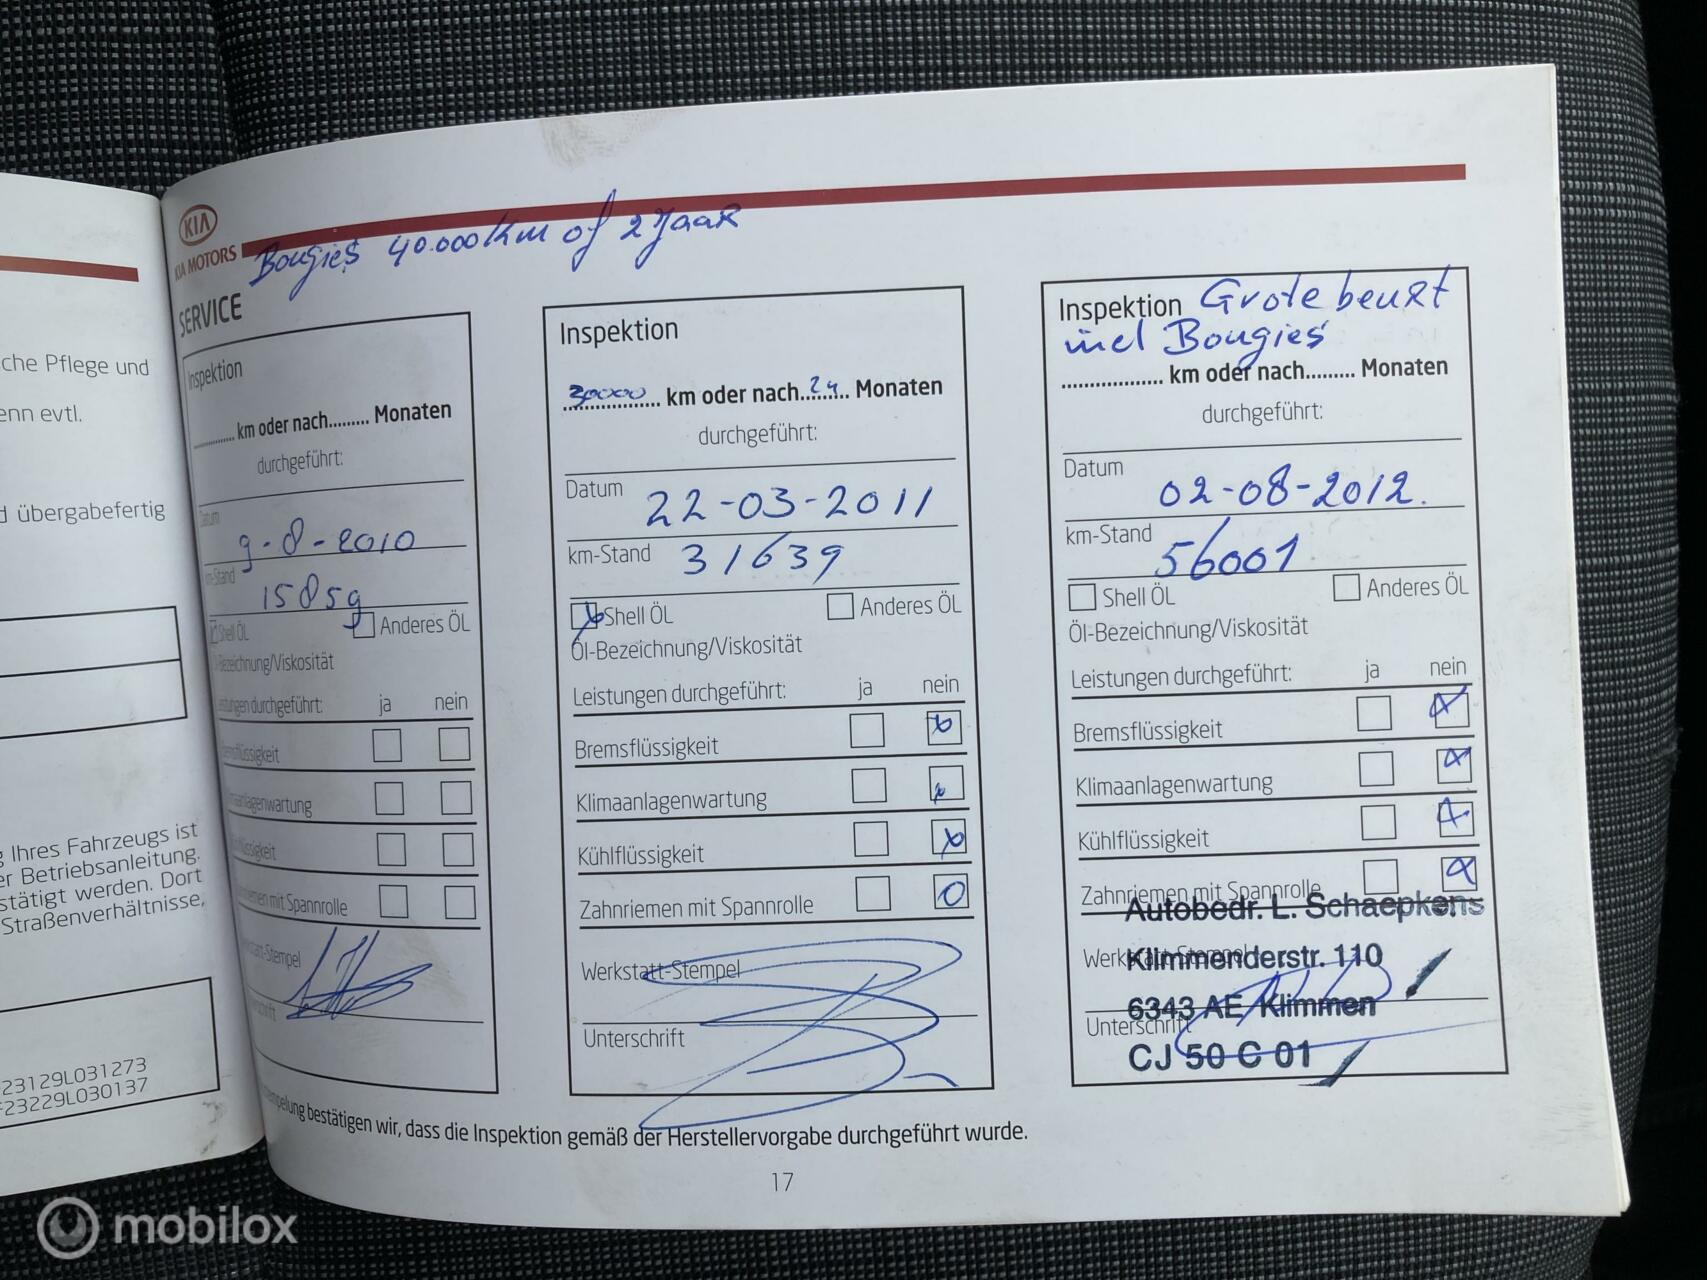 che Pflege und
enn evtl.
d übergabefertig
g Ihres Fahrzeugs ist
er Betriebsanleitung.
stätigt werden. Dort
Straßenverhältnisse,
23129L031273
F23229L030137
KIA
KIA MOTORS
Bougies 40.000 Km of 2 Jaar
SERVICE
Inspektion
............ km oder nach......... Monaten
durchgeführt:
Datum
9-8-2010
km-Stand
15859
Shell ÖL
Anderes ÖL
Bezeichnung/Viskosität
ungen durchgeführt: ja nein
emsflüssigkeit
maanlagenwartung
flüssigkeit
nriemen mit Spannrolle
statt-Stempel
erschrift
Inspektion
30000 km oder nach 24 Monaten
durchgeführt:
Datum 22-03-2011
km-Stand 31639
Shell ÖL Anderes ÖL
Öl-Bezeichnung/Viskosität
Leistungen durchgeführt: ja nein
Bremsflüssigkeit
Klimaanlagenwartung
Kühlflüssigkeit
Zahnriemen mit Spannrolle
Werkstatt-Stempel
Unterschrift
Inspektion Grote beurt
incl Bougies
.................. km oder nach......... Monaten
durchgeführt:
Datum
02-08-2012.
km-Stand
56001
Shell ÖL Anderes ÖL
Öl-Bezeichnung/Viskosität
Leistungen durchgeführt: ja nein
Bremsflüssigkeit
Klimaanlagenwartung
Kühlflüssigkeit
Zahnriemen mit Spannrolle
Autobedr. L. Schaepkens
Werkstatt-Stempel
Klimmenderstr. 110
6343 AE Klimmen
Unterschrift
CJ 50 C 01
empelung bestätigen wir, dass die Inspektion gemäß der Herstellervorgabe durchgeführt wurde.
17
mobilox